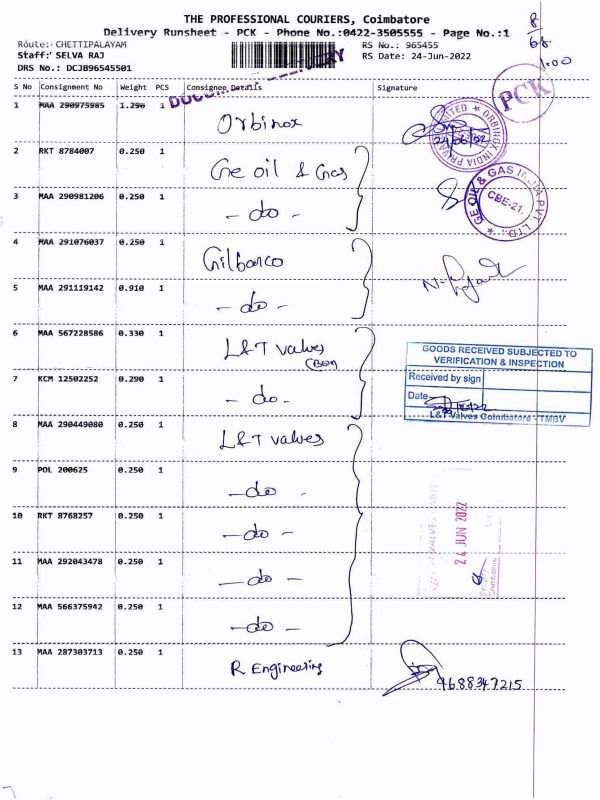 THE PROFESSIONAL COURIERS, Coimbatore
Delivery Runsheet - PCK - Phone No.:0422-3505555 - Page No.:1
Route: CHETTIPALAYAM RS No.: 965455
Staff: SELVA RAJ RS Date: 24-Jun-2022
DRS No.: DCJB96545501
8/68
1.00
PCK
S No Consignment No Weight PCS Consignee Details Signature
1 MAA 290975985 1.290 1 Orbinox
ORBINOX INDIA PRIVATE LIMITED
24/06/22
2 RKT 8784007 0.250 1 Ge oil & Gas
3 MAA 290981206 0.250 1 - do -
GE OIL & GAS INDIA PVT. LTD.,
CBE-21.
4 MAA 291076037 0.250 1 Gilbarco
5 MAA 291119142 0.910 1 - do -
6 MAA 567228586 0.330 1 L&T valves
7 KCM 12502252 0.290 1 - do -
GOODS RECEIVED SUBJECTED TO
VERIFICATION & INSPECTION
Received by sign
Date
L&T Valves Coimbatore - TMBV
8 MAA 290449080 0.250 1 L&T valves
9 POL 200625 0.250 1 - do -
10 RKT 8768257 0.250 1 - do -
24 JUN 2022
11 MAA 292043478 0.250 1 - do -
12 MAA 566375942 0.250 1 - do -
13 MAA 287303713 0.250 1 R Engineering
9688347215